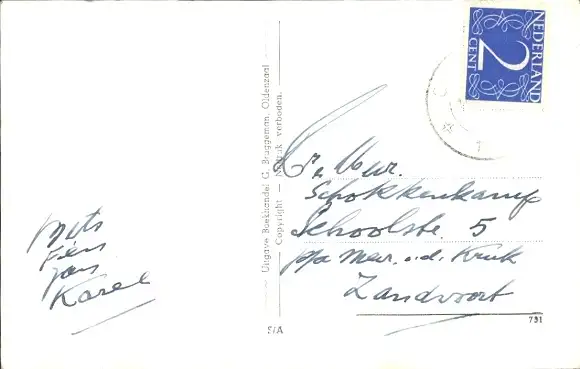 Mits
Fien
Jan
Karel
Uitgave Boekhandel G. Bruggeman, Oldenzaal
Copyright — Nadruk verboden.
S/A
NEDERLAND
2
CENT
Mevr.
Schokkenkamp
Schoolstr. 5
p/a Mevr. v.d. Kruk
Zandvoort
731